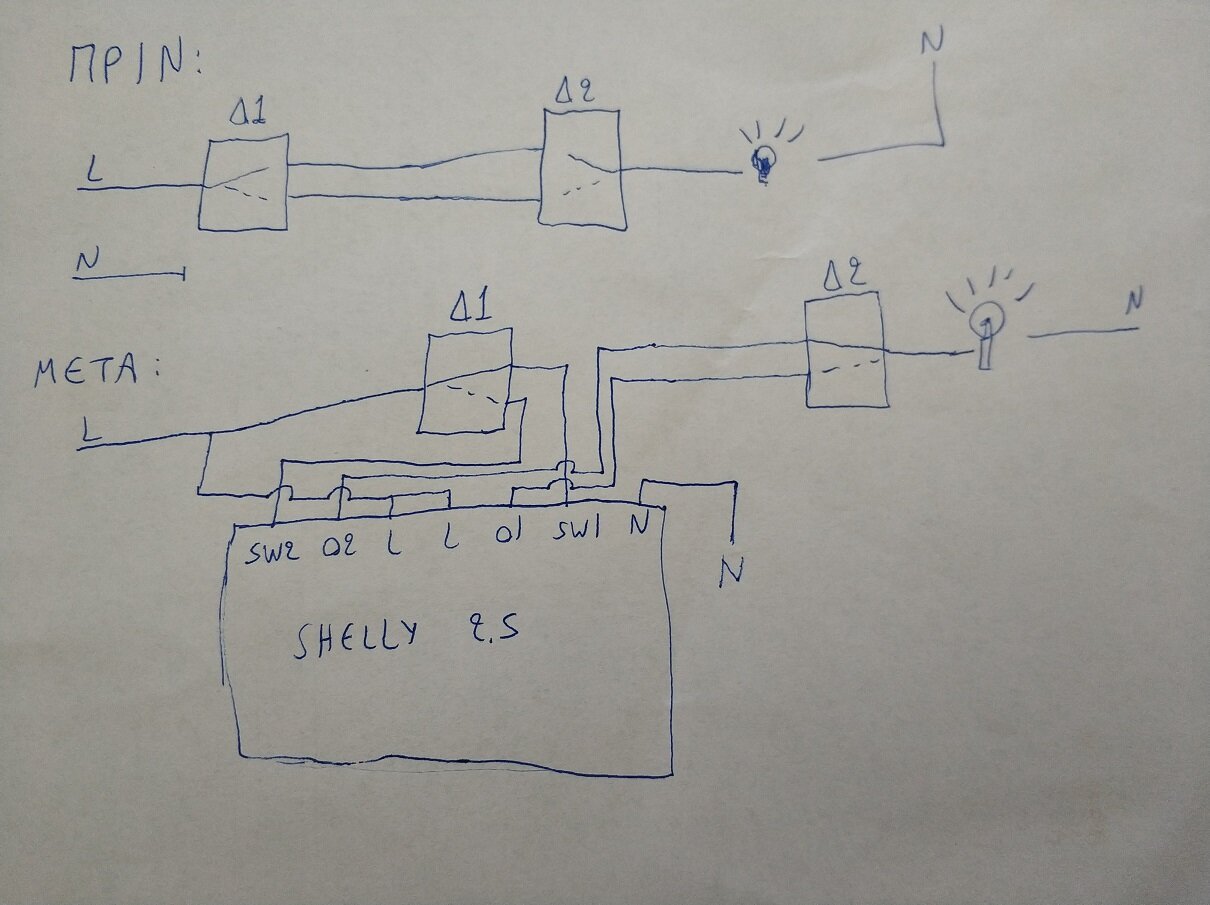 ΠΡΙΝ:
N
Δ1
Δ2
L
N
Δ1
Δ2
N
ΜΕΤΑ:
L
SW2 O2 L L O1 SW1 N
N
SHELLY 2.5